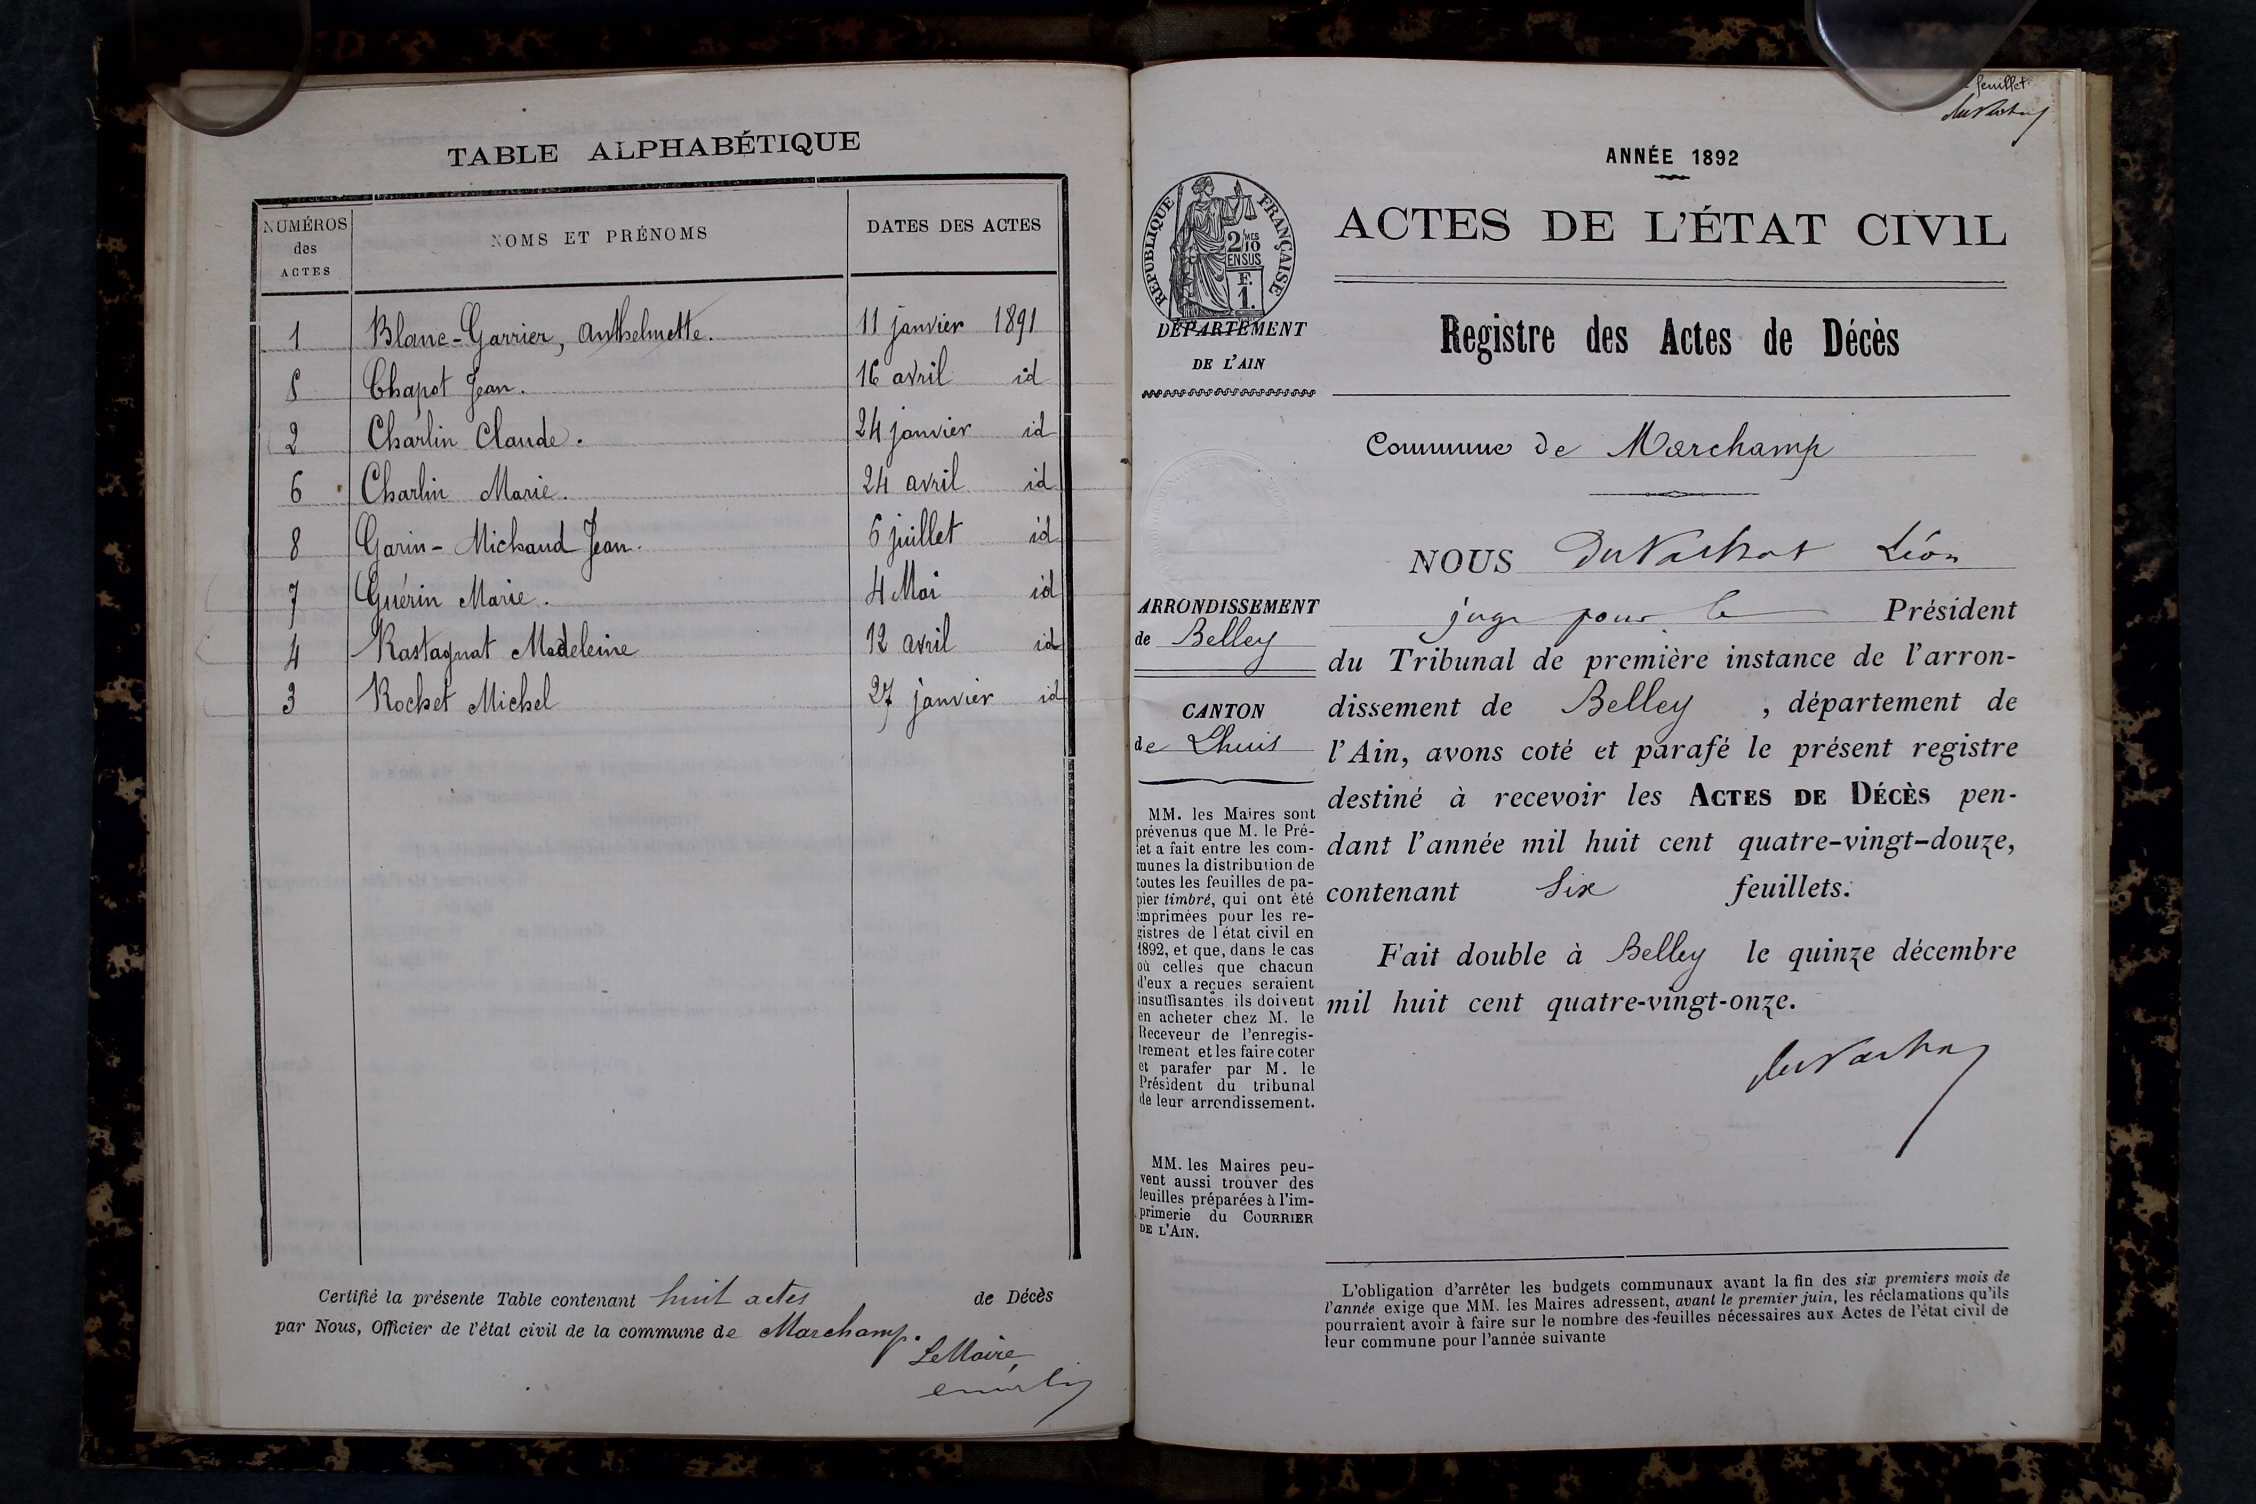 TABLE ALPHABÉTIQUE
NUMÉROS des ACTES NOMS ET PRÉNOMS DATES DES ACTES
1 Blanc-Garrier, Anthelmette. 11 janvier 1891
5 Chapot Jean. 16 avril id
2 Charlin Claude. 24 janvier id
6 Charlin Marie. 24 avril id
8 Garin-Michaud Jean. 6 juillet id
7 Guérin Marie. 4 Mai id
4 Rastagnat Madeleine 12 avril id
3 Rochet Michel 27 janvier id
Certifié la présente Table contenant huit actes de Décès
par Nous, Officier de l'état civil de la commune de Marchamp.
Le Maire,
feuillet
ANNÉE 1892
ACTES DE L'ÉTAT CIVIL
Registre des Actes de Décès
RÉPUBLIQUE FRANÇAISE
2/10 MES
EN SUS
F.
1.
DÉPARTEMENT
DE L'AIN
Commune de Marchamp
ARRONDISSEMENT
de Belley
CANTON
de Lhuis
MM. les Maires sont
prévenus que M. le Pré-
fet a fait entre les com-
munes la distribution de
toutes les feuilles de pa-
pier timbré, qui ont été
imprimées pour les re-
gistres de l'état civil en
1892, et que, dans le cas
où celles que chacun
d'eux a reçues seraient
insuffisantes ils doivent
en acheter chez M. le
Receveur de l'enregis-
trement et les faire coter
et parafer par M. le
Président du tribunal
de leur arrondissement.
MM. les Maires peu-
vent aussi trouver des
feuilles préparées à l'im-
primerie du COURRIER
DE L'AIN.
NOUS Léon
juge pour le Président
du Tribunal de première instance de l'arron-
dissement de Belley , département de
l'Ain, avons coté et parafé le présent registre
destiné à recevoir les ACTES DE DÉCÈS pen-
dant l'année mil huit cent quatre-vingt-douze,
contenant Six feuillets.
Fait double à Belley le quinze décembre
mil huit cent quatre-vingt-onze.
L'obligation d'arrêter les budgets communaux avant la fin des six premiers mois de
l'année exige que MM. les Maires adressent, avant le premier juin, les réclamations qu'ils
pourraient avoir à faire sur le nombre des feuilles nécessaires aux Actes de l'état civil de
leur commune pour l'année suivante